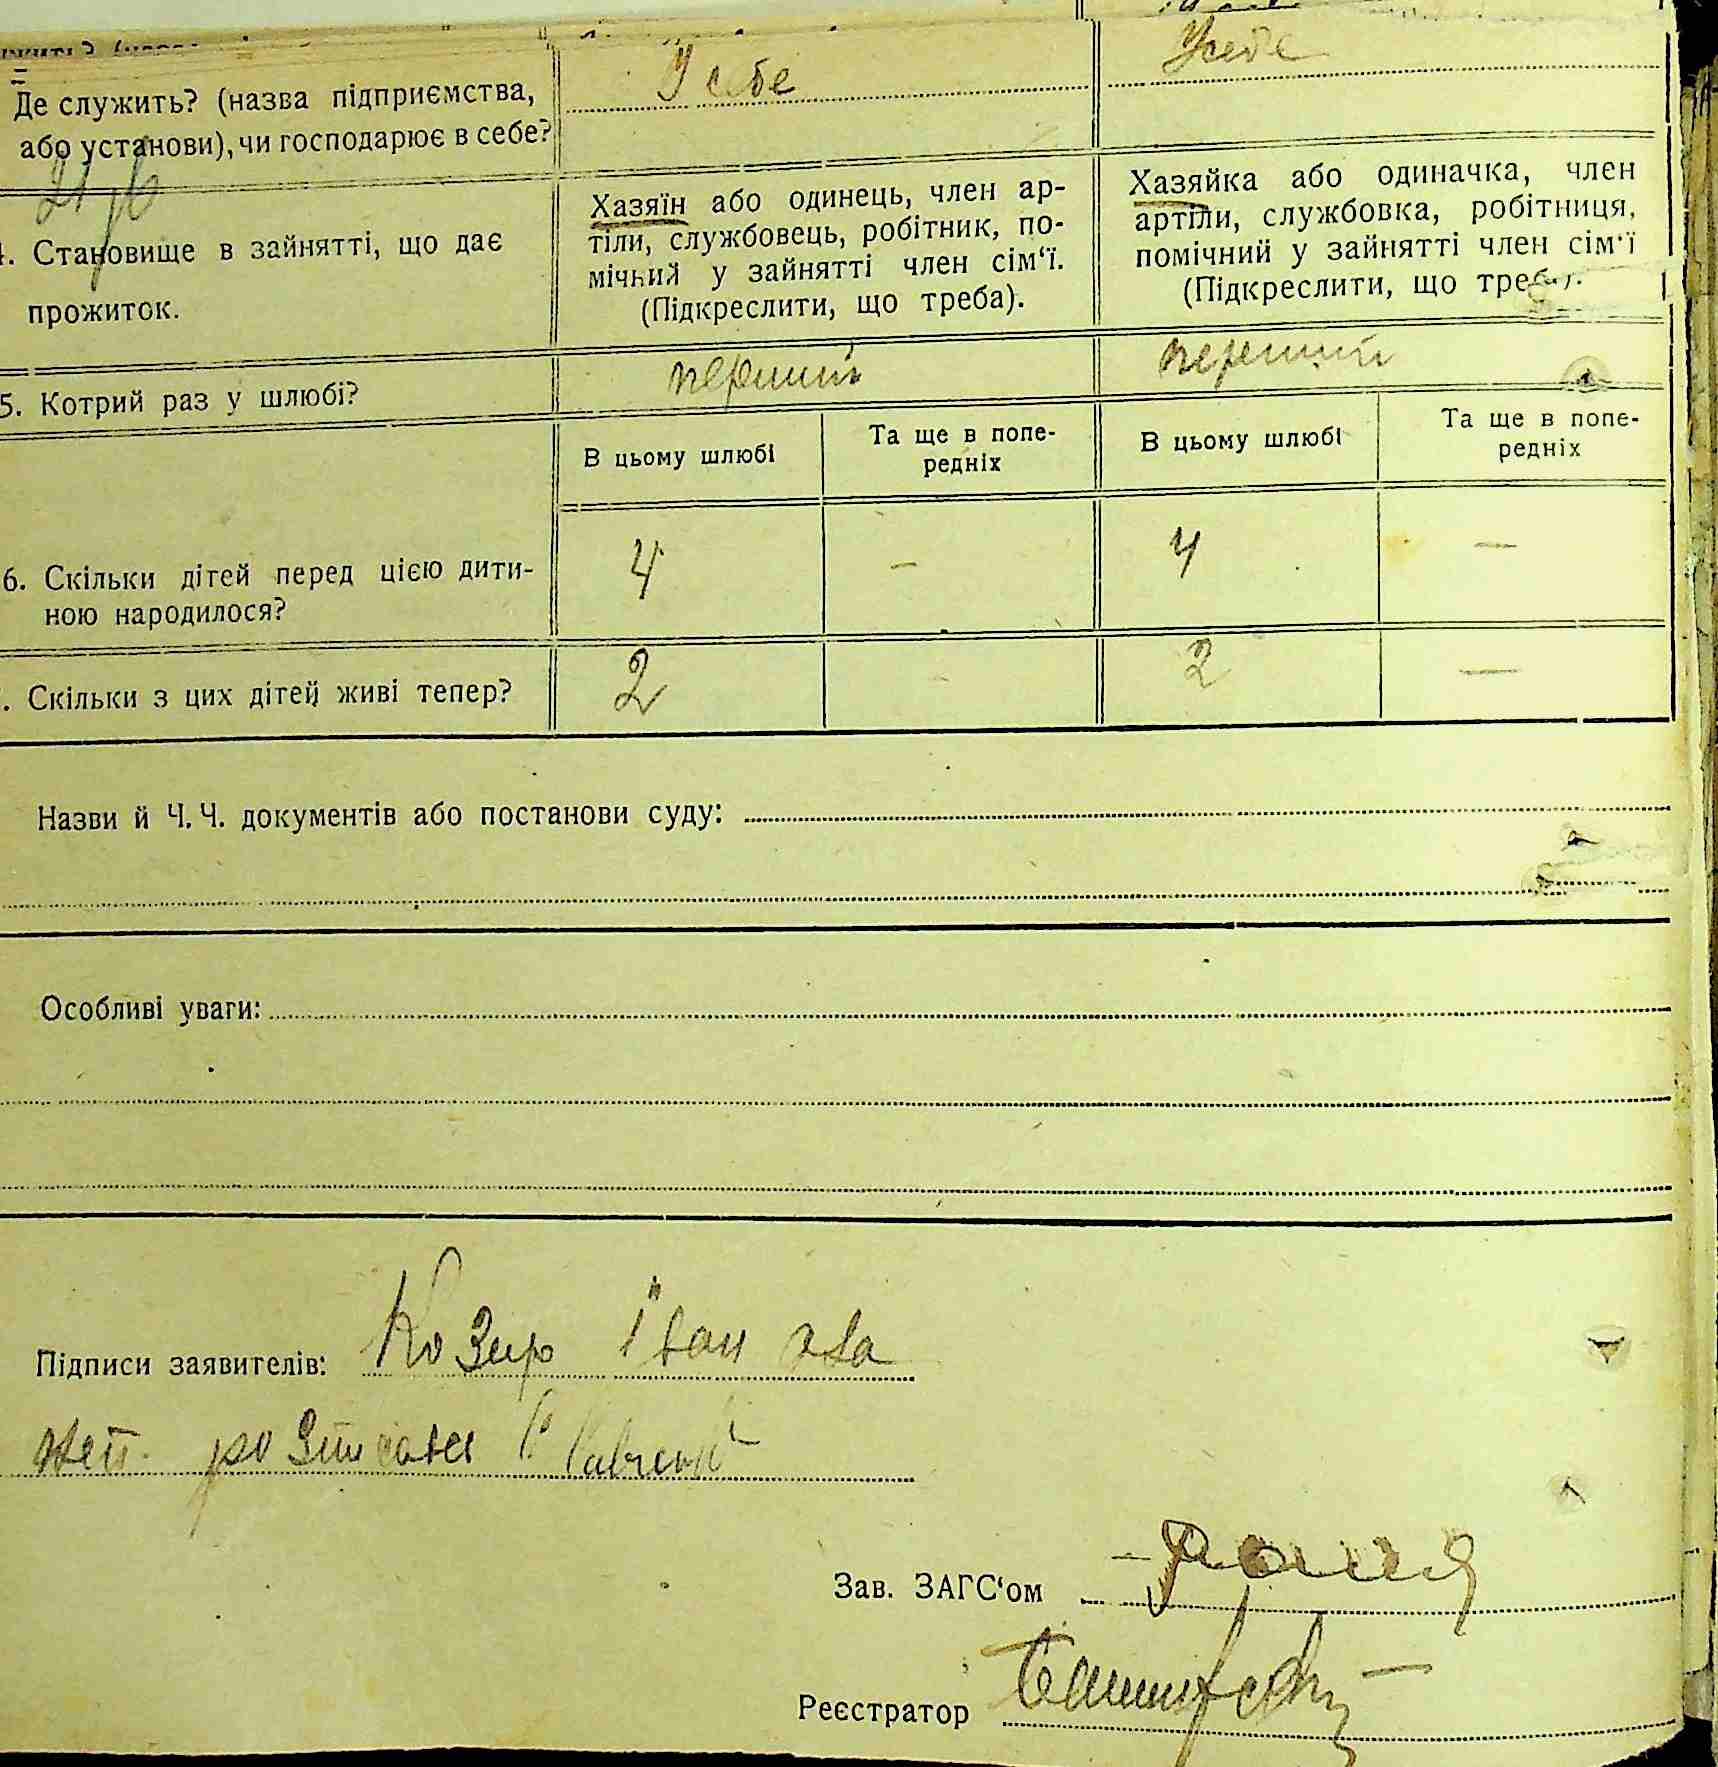 Де служить? (назва підприємства, або установи), чи господарює в себе?
У себе
У себе
4. Становище в зайнятті, що дає прожиток.
Хазяїн або одинець, член ар-
тіли, службовець, робітник, по-
мічний у зайнятті член сім‘ї.
(Підкреслити, що треба).
Хазяйка або одиначка, член
артіли, службовка, робітниця,
помічний у зайнятті член сім‘ї
(Підкреслити, що треба).
5. Котрий раз у шлюбі?
перший
перший
В цьому шлюбі
Та ще в попе-
редніх
В цьому шлюбі
Та ще в попе-
редніх
6. Скільки дітей перед цією дити-
ною народилося?
4 - 4 —
. Скільки з цих дітей живі тепер?
2 - 2 —
Назви й Ч. Ч. документів або постанови суду:
Особливі уваги:
Підписи заявителів: Козир Іван а за
неп. розписався
Зав. ЗАГС‘ом
Реєстратор